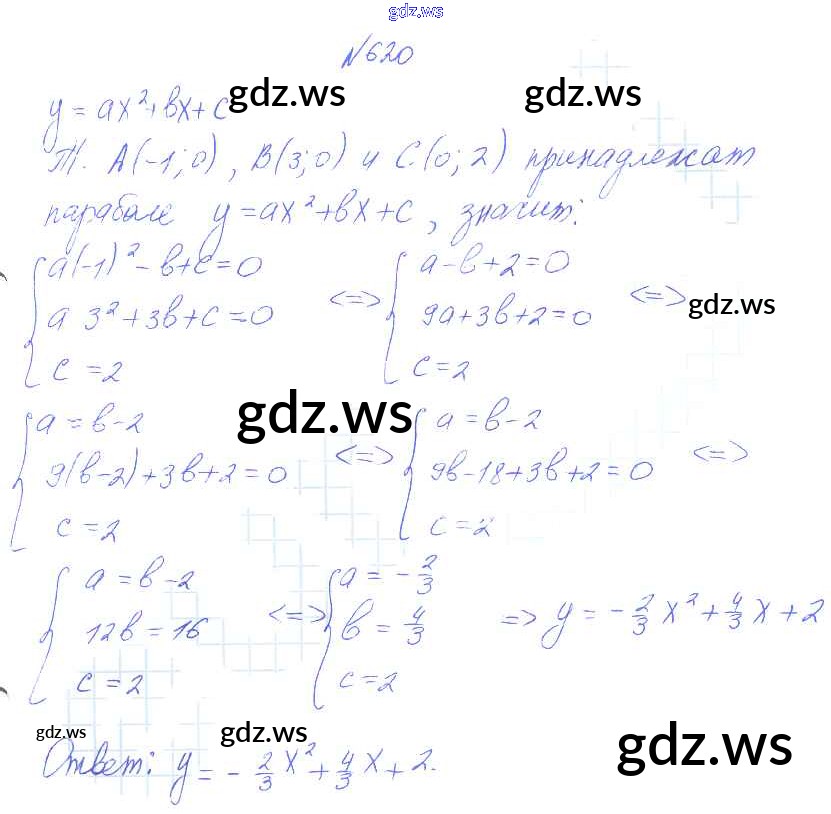 gdz.ws
№620
y = ax²+bx+c gdz.ws gdz.ws
Т. A(-1;0), B(3;0) и C(0;2) принадлежат
параболе y=ax²+bx+c, значит:
a(-1)²-b+c=0
a 3²+3b+c=0
c=2
<=>
a-b+2=0
9a+3b+2=0
c=2
<=> gdz.ws
a=b-2
9(b-2)+3b+2=0
c=2
gdz.ws
<=>
a=b-2
9b-18+3b+2=0
c=2
<=>
a=b-2
12b=16
c=2
<=>
a=-2/3
b=4/3
c=2
=> y=-2/3x²+4/3x+2
gdz.ws gdz.ws gdz.ws
Ответ: y=-2/3x²+4/3x+2.